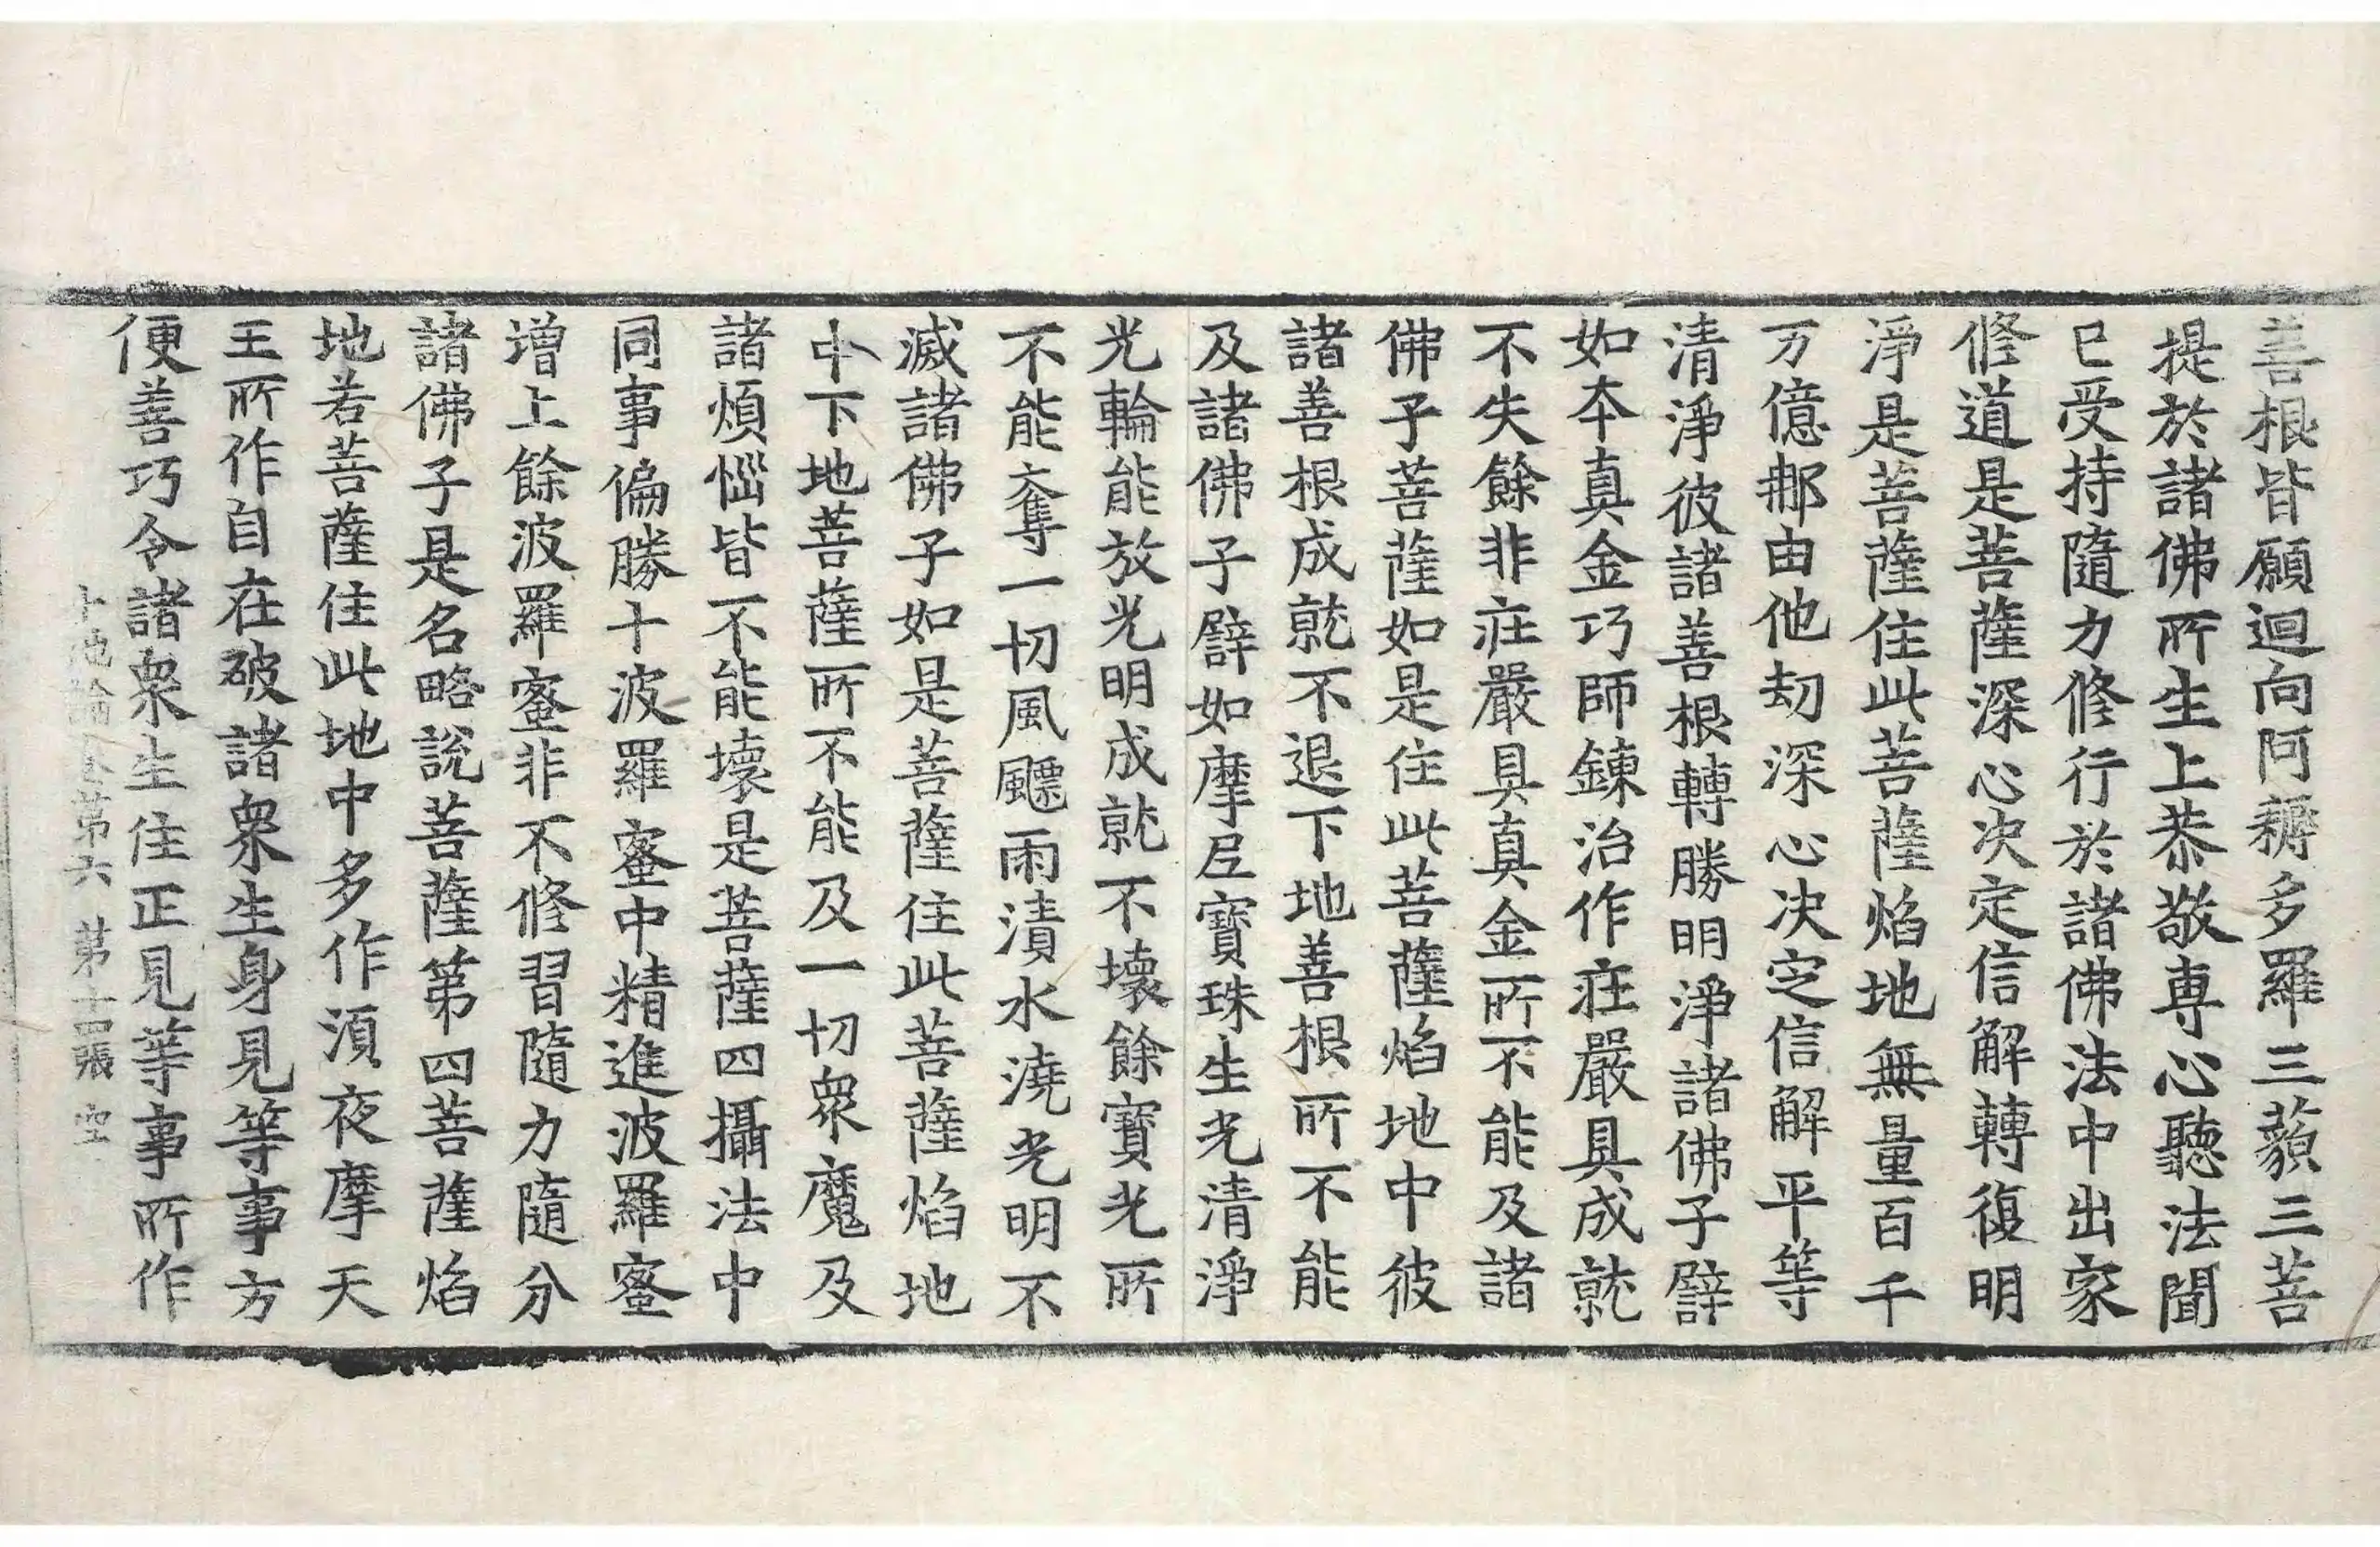 善根皆願迴向阿耨多羅三藐三菩
提於諸佛所生上恭敬專心聽法聞
已受持隨力修行於諸佛法中出家
修道是菩薩深心决定信解轉復明
淨是菩薩住此菩薩焰地無量百千
万億那由他劫深心决定信解平等
清淨彼諸善根轉勝明淨諸佛子譬
如本真金巧師鍊治作庄嚴具成就
不失餘非庄嚴具真金所不能及諸
佛子菩薩如是住此菩薩焰地中彼
諸善根成就不退下地善根所不能
及諸佛子譬如摩尼寶珠生光清淨
光輪能放光明成就不壞餘寶光所
不能奪一切風飃雨漬水澆光明不
滅諸佛子如是菩薩住此菩薩焰地
中下地菩薩所不能及一切衆魔及
諸煩惱皆不能壞是菩薩四攝法中
同事偏勝十波羅蜜中精進波羅蜜
增上餘波羅蜜非不修習隨力隨分
諸佛子是名略說菩薩第四菩薩焰
地若菩薩住此地中多作須夜摩天
王所作自在破諸衆生身見等事方
便善巧令諸衆生住正見等事所作
十地論卷第六 第十四張 空